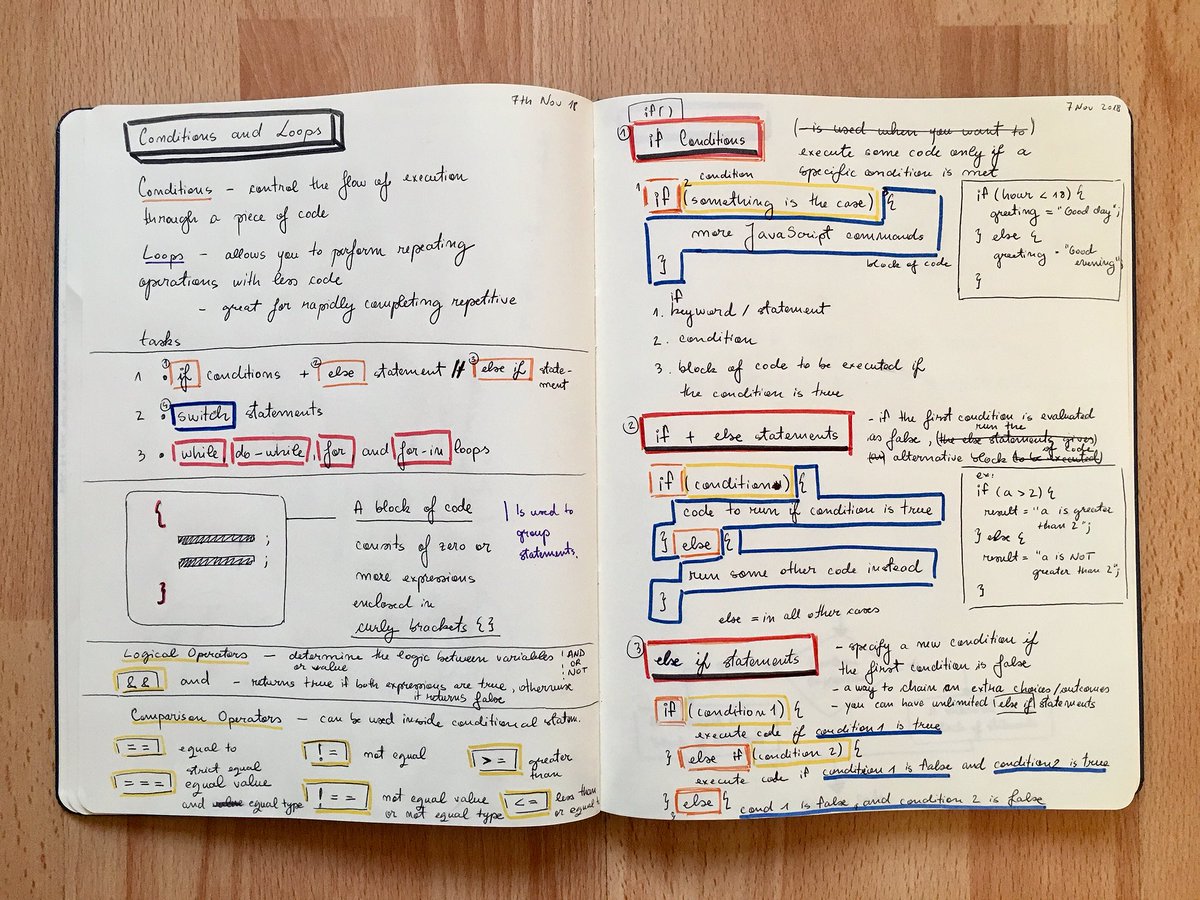 7th Nov 18
Conditions and Loops
Conditions - control the flow of execution
through a piece of code
Loops - allows you to perform repeating
operations with less code
- great for rapidly completing repetitive
tasks
1 • ① if conditions + ② else statement // ③ else if state-
ment
2 • ④ switch statements
3 • while, do-while, for and for-in loops
{
;
;
}
A block of code
consits of zero or
more expressions
enclosed in
curly brackets {}
Is used to
group
statements.
Logical Operators - determine the logic between variables
or value
! AND
! OR
! NOT
&& and - returns true if both expressions are true, otherwise
it returns false
Comparison Operators - can be used inside conditional statem.
== equal to
!= not equal
>= greater
than
=== strict equal
equal value
and value equal type
!== not equal value
or not equal type
<= less than
or equal t
7 Nov 2018
if()
① if Conditions
(- is used when you want to)
execute some code only if a
specific condition is met
condition
1 if 2 (something is the case) 3 {
more JavaScript commands
}
block of code
if (hour < 18) {
greeting = "Good day";
} else {
greeting = "Good
evening";
}
if
1. keyword / statement
2. condition
3. block of code to be executed if
the condition is true
② if + else statements
- if the first condition is evaluated
run the
as false, (the else statements gives)
of code
alternative block to be executed)
if (condition) {
code to run if condition is true
} else {
run some other code instead
}
else = in all other cases
ex:
if (a > 2) {
result = "a is greater
than 2";
} else {
result = "a is NOT
greater than 2";
}
③ else if statements
- specify a new condition if
the first condition is false
- a way to chain on extra choices/outcomes
- you can have unlimited else if statements
if (condition 1) {
execute code if condition 1 is true
} else if (condition 2) {
execute code if condition 1 is false and condition 2 is true
} else { cond 1 is false and condition 2 is false
}